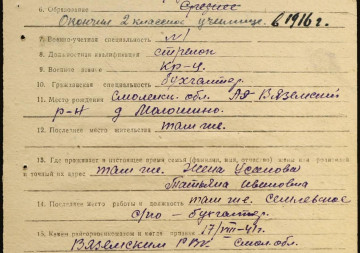 6. Образование Среднее
Окончил 2 классное училище в 1916 г.
7. Военно-учетная специальность №1
8. Должностная квалификация стрелок
9. Военное звание Кр-ц.
10. Гражданская специальность бухгалтер.
11. Место рождения Смоленск. обл. Вяземский
р-н д. Малошино.
12. Последнее место жительства там же.
13. Где проживает в настоящее время семья (фамилия, имя, отчество) жены или родителей
и точный их адрес там же. Жена Усанова
Татьяна Ивановна
14. Последнее место работы и должность там же. Семлевское
с/по - бухгалтер.
15. Каким райвоенкоматом и когда призван 17/VII-41г.
Вяземским РВК Смол. обл.